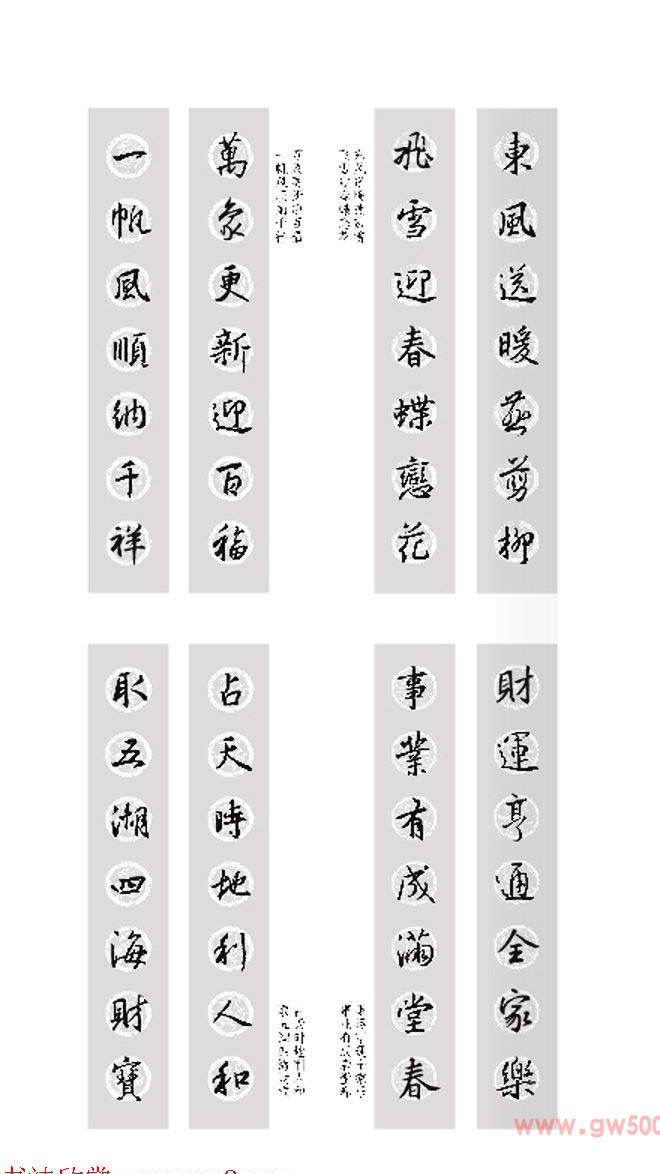 東風送暖燕剪柳
飛雪迎春蝶戀花
萬象更新迎百福
一帆風順納千祥
財運亨通全家樂
事業有成滿堂春
占天時地利人和
取五湖四海財寶
www.gw500